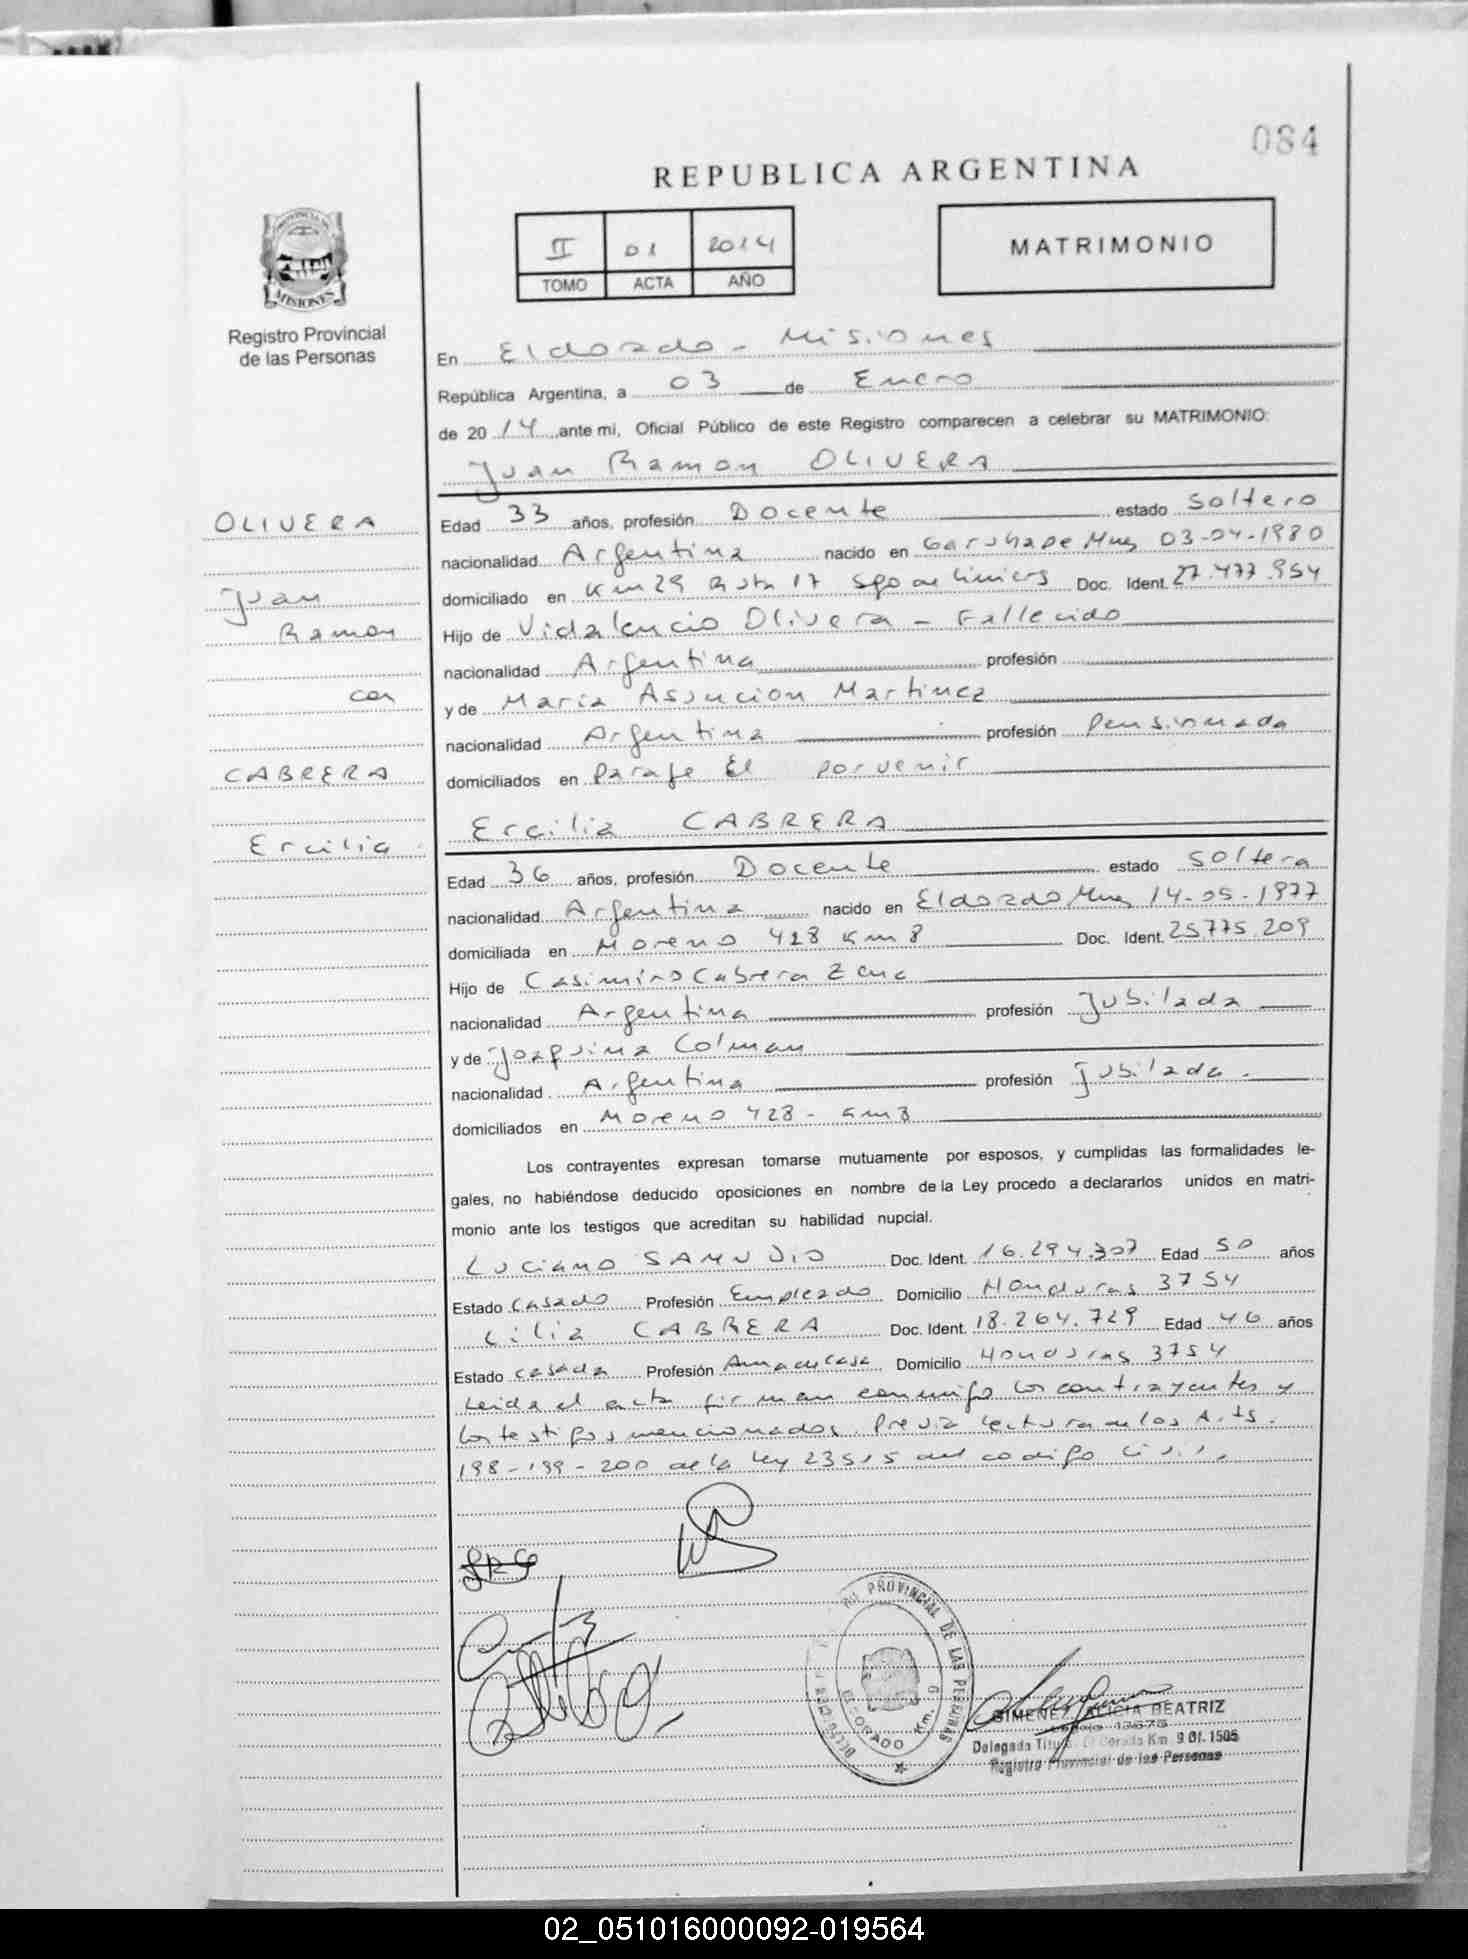 084
REPUBLICA ARGENTINA
II 01 2014
TOMO ACTA AÑO
MATRIMONIO
MISIONES
Registro Provincial
de las Personas
En Eldorado - Misiones
República Argentina, a 03 de Enero
de 20 14 ante mi, Oficial Público de este Registro comparecen a celebrar su MATRIMONIO:
Juan Ramon OLIVERA
OLIVERA
Juan
Ramon
con
CABRERA
Ercilia
Edad 33 años, profesión Docente estado Soltero
nacionalidad Argentina nacido en Garuhape Mnes 03-04-1980
domiciliado en Km 29 Ruta 17 Sgo de Liniers Doc. Ident. 27.477.954
Hijo de Vidalencio Olivera - Fallecido
nacionalidad Argentina profesión
y de Maria Asuncion Martinez
nacionalidad Argentina profesión Pensionada
domiciliados en Paraje El porvenir
Ercilia CABRERA
Edad 36 años, profesión Docente estado Soltera
nacionalidad Argentina nacido en Eldorado Mnes 14-05-1977
domiciliada en Moreno 428 Km 8 Doc. Ident. 25775.209
Hijo de Casimiro Cabrera
nacionalidad Argentina profesión Jubilada
y de Joaquina Colman
nacionalidad Argentina profesión Jubilada.
domiciliados en Moreno 428 - Km 8
Los contrayentes expresan tomarse mutuamente por esposos, y cumplidas las formalidades le-
gales, no habiéndose deducido oposiciones en nombre de la Ley procedo a declararlos unidos en matri-
monio ante los testigos que acreditan su habilidad nupcial.
Luciano SAMUDIO Doc. Ident. 16.294.307 Edad 50 años
Estado Casado Profesión Empleado Domicilio Honduras 3754
Lilia CABRERA Doc. Ident. 18.264.729 Edad 46 años
Estado casada Profesión Ama de casa Domicilio Honduras 3754
Leida el acta firman conmigo los contrayentes y
los testigos mencionados. Previa lectura de los Arts.
198-199-200 de la ley 23515 del codigo Civil.
PROVINCIAL DE LAS PERSONAS
ELDORADO Km.
GIMENEZ ALICIA BEATRIZ
Delegada Titular El Dorado Km. 9 Of. 1505
Registro Provincial de las Personas
02_051016000092-019564